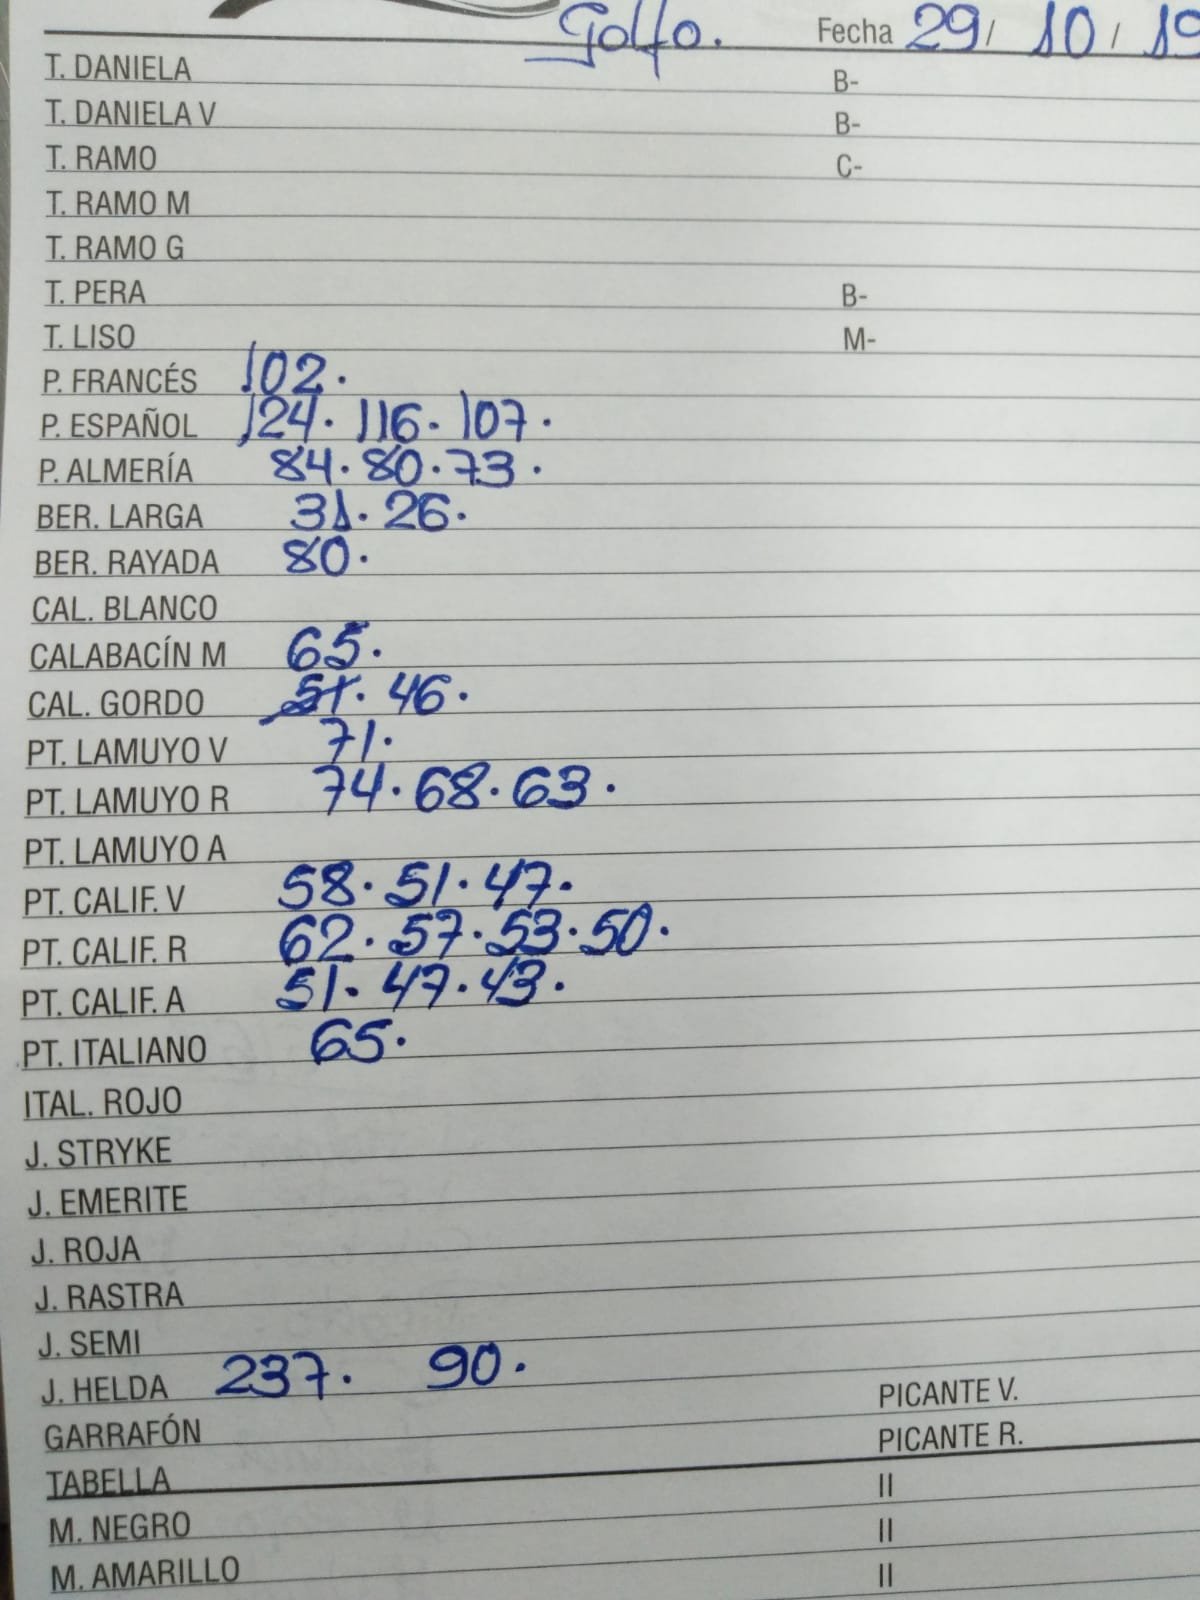 Golfo. Fecha 29/ 10 / 19
T. DANIELA B-
T. DANIELA V B-
T. RAMO C-
T. RAMO M
T. RAMO G
T. PERA B-
T. LISO M-
P. FRANCÉS 102.
P. ESPAÑOL 124. 116. 107.
P. ALMERÍA 84. 80. 73.
BER. LARGA 31. 26.
BER. RAYADA 80.
CAL. BLANCO
CALABACÍN M 65.
CAL. GORDO 51. 46.
PT. LAMUYO V 71.
PT. LAMUYO R 74. 68. 63.
PT. LAMUYO A
PT. CALIF. V 58. 51. 47.
PT. CALIF. R 62. 57. 53. 50.
PT. CALIF. A 51. 47. 43.
PT. ITALIANO 65.
ITAL. ROJO
J. STRYKE
J. EMERITE
J. ROJA
J. RASTRA
J. SEMI
J. HELDA 237. 90. PICANTE V.
GARRAFÓN PICANTE R.
TABELLA II
M. NEGRO II
M. AMARILLO II